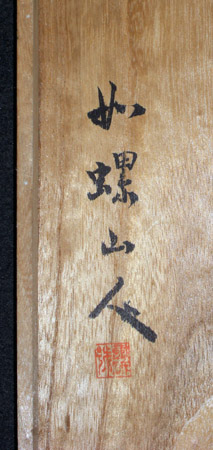 如螺山人